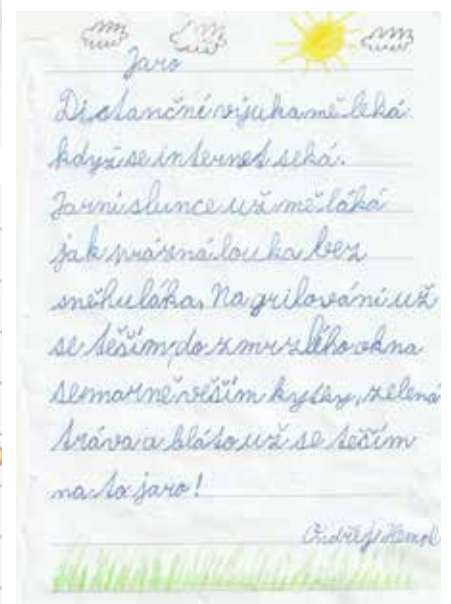 Jaro
Distanční výuka mě leká
když se internet seká.
Jarní slunce už mě láká
jak prázná louka bez
sněhuláka. Na grilování už
se těším, do zmrzlého okna
se marně věším kytky, zelená
tráva a bláto už se těším
na to jaro!
Ondřej